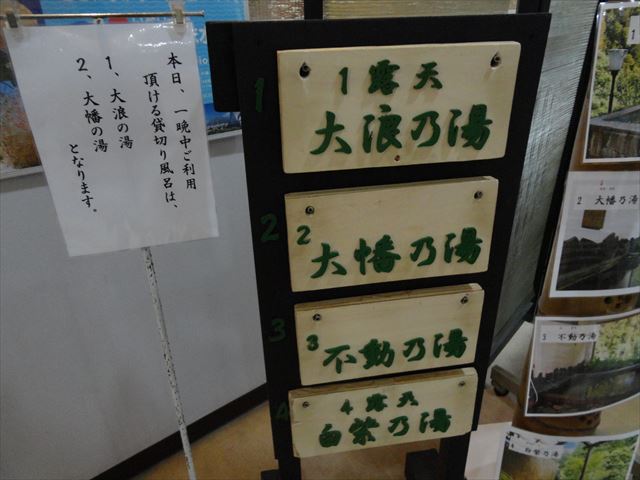 本日、一晩中ご利用
頂ける貸切り風呂は、
1、大浪の湯
2、大幡の湯
となります。
1
1露天
大浪乃湯
2
2
大幡乃湯
3
3
不動乃湯
4
4露天
白紫乃湯
1
2 大幡乃湯
3 不動乃湯
4 白紫乃湯